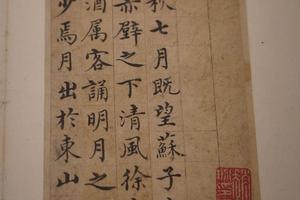 秋七月既望蘇子
赤壁之下清風徐
酒属客誦明月之
少焉月出於東山